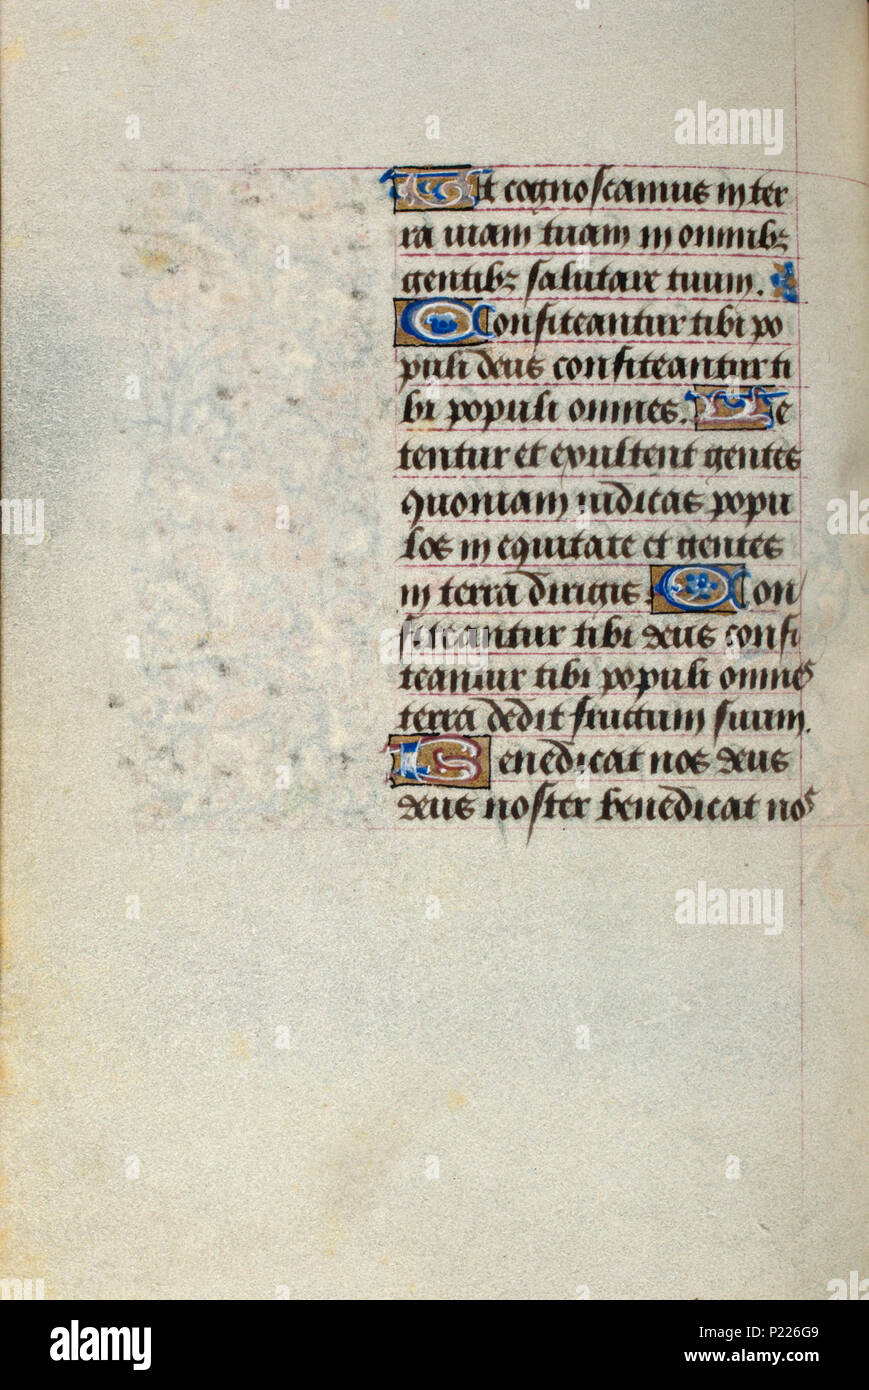 Ut cognoscamus in ter
ra uiam tuam in omnibꝫ
gentibꝫ salutare tuum.
Confiteantur tibi po
puli deus confiteantur ti
bi populi omnes. Le
tentur et exultent gentes
quoniam iudicas popu
los in equitate et gentes
in terra dirigis. Con
fiteantur tibi deus confi
teantur tibi populi omnes
terra dedit fructum suum.
Benedicat nos deus
deus noster benedicat nos
alamy
Image ID: P226G9
www.alamy.com